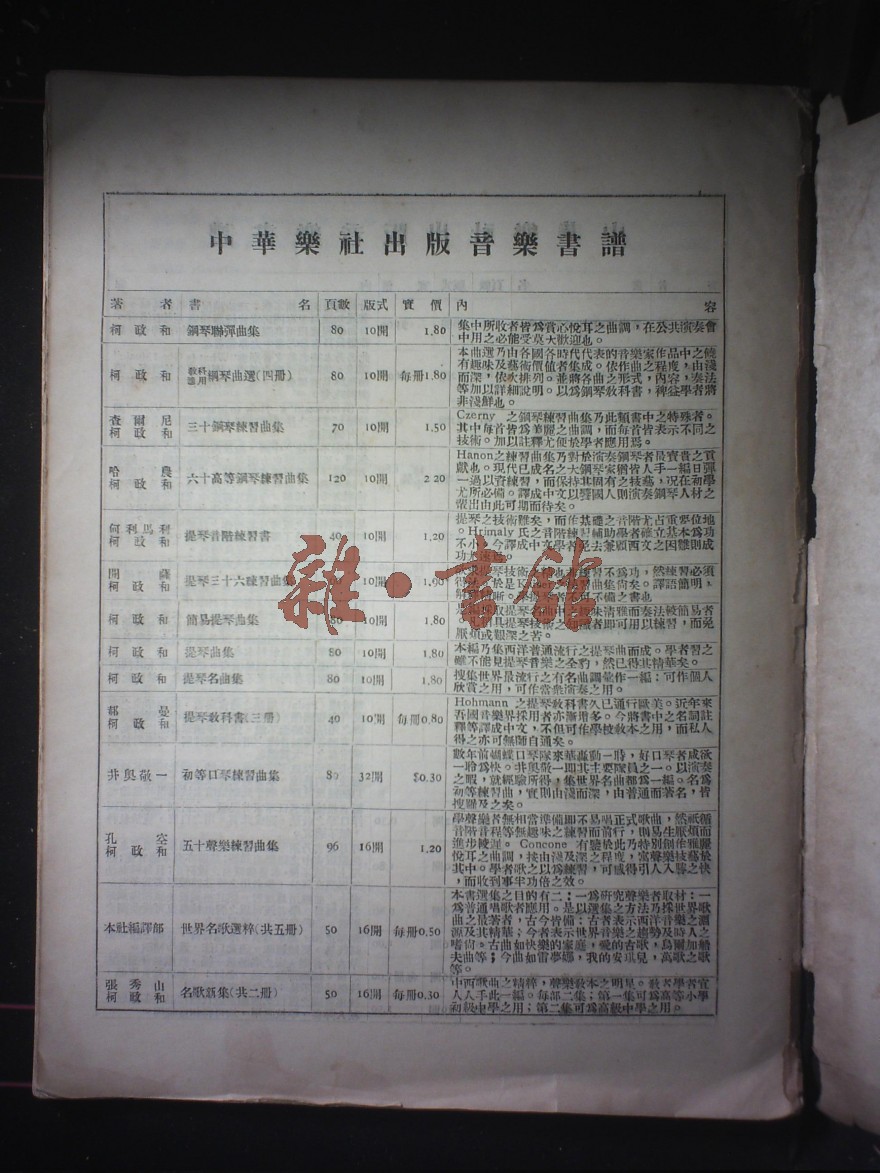 中華樂社出版音樂書譜
著者 書名 頁數 版式 實價 內容
柯政和 鋼琴聯彈曲集 80 10開 1.80 集中所收者皆爲賞心悅耳之曲調，在公共演奏會
中用之必能受莫大歡迎也。
柯政和 教科適用 鋼琴曲選(四冊) 80 10開 每冊1.80 本曲選乃由各國各時代代表的音樂家作品中之饒
有趣味及藝術價值者集成。依作曲之程度，由淺
而深，依次排列。並將各曲之形式，內容，奏法
等加以詳細說明。以爲鋼琴教科書，裨益學者將
非淺鮮也。
查爾尼
柯政和 三十鋼琴練習曲集 70 10開 1.50 Czerny 之鋼琴練習曲集乃此類書中之特殊者。
其中每首皆爲華麗之曲調，而每首皆表示不同之
技術。加以註釋尤便於學者應用焉。
哈農
柯政和 六十高等鋼琴練習曲集 120 10開 2 20 Hanon之練習曲集乃對於演奏鋼琴者最寶貴之貢
獻也。現代已成名之大鋼琴家猶皆人手一編日彈
一過以資練習，而保持其固有之技藝，況在初學
尤所必備。譯成中文以饗國人則演奏鋼琴人材之
輩出由此可期而待矣。
何利馬利
柯政和 提琴音階練習書 40 10開 1.20 提琴之技術難矣，而作基礎之音階尤占重要位地
。Hrimaly 氏之音階練習補助學者確立基本爲功
不小。今譯成中文學者免去兼顧西文之困難則成
功
開薩
柯政和 提琴三十六練習曲集 10開 1.90
柯政和 簡易提琴曲集 80 10開 1.80 趣味清雅而奏法較易者
者即可用以練習，而免
厭煩或艱深之苦。
柯政和 提琴曲集 80 10開 1.80 本編乃集西洋普通流行之提琴曲而成。學者習之
雖不能見提琴音樂之全豹，然已得其精華矣。
柯政和 提琴名曲集 80 10開 1.80 搜集世界最流行之有名曲調彙作一編；可作個人
欣賞之用，可作當衆演奏之用。
郝曼
柯政和 提琴教科書(三册) 40 10開 每冊0.80 Hohmann 之提琴教科書久已通行歐美。近年來
吾國音樂界採用者亦漸增多。今將書中之名詞註
釋等譯成中文，不但可作學校教本之用，而私人
得之亦可無師自通矣。
井奥敬一 初等口琴練習曲集 80 32開 $0.30 數年前蝴蝶口琴隊來華轟動一時，好口琴者咸欲
一聆爲快。井奥敬一即其主要隊員之一。以演奏
之暇，就經驗所得，集世界名曲都爲一編。名爲
初等練習曲，實則由淺而深，由普通而著名，皆
搜羅及之矣。
孔空
柯政和 五十聲樂練習曲集 96 16開 1.20 學聲樂者無相當準備即不易唱正式歌曲，然祇循
音階音程等無趣味之練習而前行，則易生厭煩而
進步較遲。Concone 有鑒於此乃特別創作雅麗
悅耳之曲調，按由淺及深之程度，寓聲樂技藝於
其中。學者歌之以爲練習，可感得引人入勝之快
，而收到事半功倍之效。
本社編譯部 世界名歌選粹(共五册) 50 16開 每冊0.50 本書選集之目的有二：一爲研究聲樂者取材；一
爲普通唱歌者應用。是以選集之方法乃採世界歌
曲之最著者，古今皆備；古者表示西洋音樂之淵
源及其精華；今者表示世界音樂之趨勢及時人之
嗜尚。古曲如快樂的家庭，愛的古歌，烏爾加船
夫曲等；今曲如雷夢娜，我的安琪兒，高歌之歌
等。
張秀山
柯政和 名歌新集(共二冊) 50 16開 每冊0.30 中西歌曲之精粹，聲樂教本之明星。教者學者宜
人人手此一編。每部二集；第一集可爲高等小學
初級中學之用；第二集可爲高級中學之用。
雜·書館